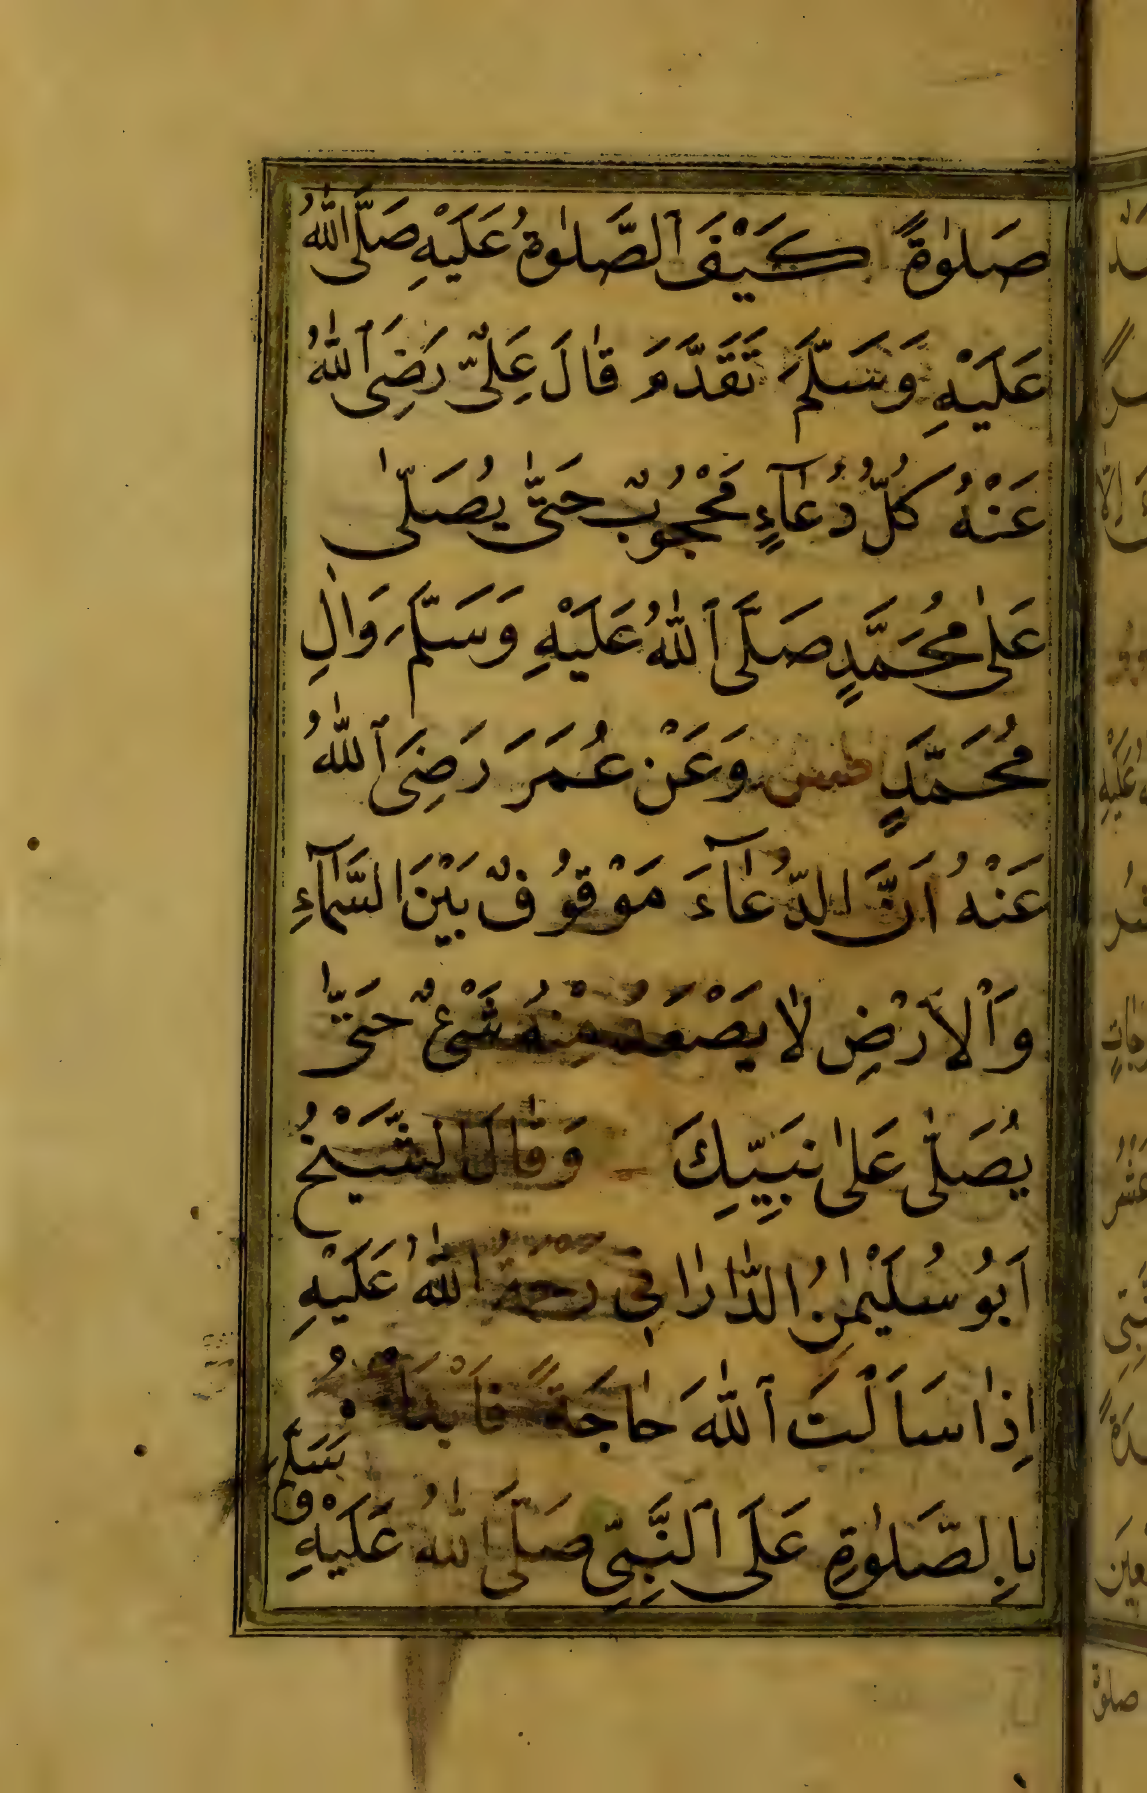 صَلٰوةً كَيْفَ ٱلصَّلٰوةُ عَلَيْهِ صَلَّى اللّٰهُ
عَلَيْهِ وَسَلَّمَ تَقَدَّمَ قٰالَ عَلِىٌّ رَضِىَ ٱللّٰهُ
عَنْهُ كُلُّ دُعَآءٍ مَحْجُوبٌ حَتّٰى يُصَلّٰى
عَلٰى مُحَمَّدٍ صَلَّى ٱللّٰهُ عَلَيْهِ وَسَلَّمَ وَاٰلِ
مُحَمَّدٍ وَعَنْ عُمَرَ رَضِىَ ٱللّٰهُ
عَنْهُ اَنَّ الدُّعَآءَ مَوْقُوفٌ بَيْنَ السَّمَآءِ
وَٱلْاَرْضِ لٰا يَصْعَدُ مِنْهُ شَىْءٌ حَتّٰى
يُصَلّٰى عَلٰى نَبِيِّكَ وَقٰالَ الشَّيْخُ
اَبُو سُلَيْمٰنَ الدّٰارٰانِى رَحْمَةُ اللّٰهُ عَلَيْهِ
اِذٰا سَاَلْتَ ٱللّٰهَ حٰاجَةً فَابْدَأْ
بِالصَّلٰوةِ عَلَى ٱلنَّبِىِّ صَلَّى اللّٰهُ عَلَيْهِ
وَسَلَّمَ
صلوة